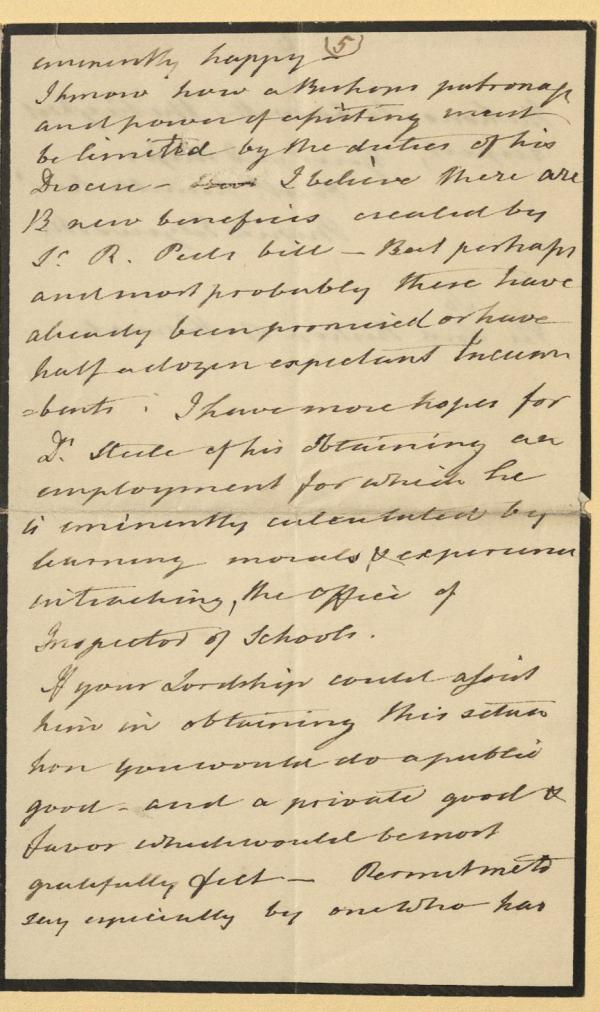 (5)
eminently happy —
I know how a Bishops patronage
and power of assisting must
be limited by the duties of his
Diocese — I believe there are
13 new benefices created by
Sr. R. Peels bill — But perhaps
and most probably these have
already been promised or have
half a dozen expectant Incum
=bents. I have more hopes for
Dr. Steele of his obtaining an
employment for which he
is eminently calculated by
learning morals, & experience
in teaching, the office of
Inspector of Schools.
If your Lordship could assist
him in obtaining this situa
tion you would do a public
good — and a private good &
favor which would be most
gratefully felt — Permit me to
say especially by one who has